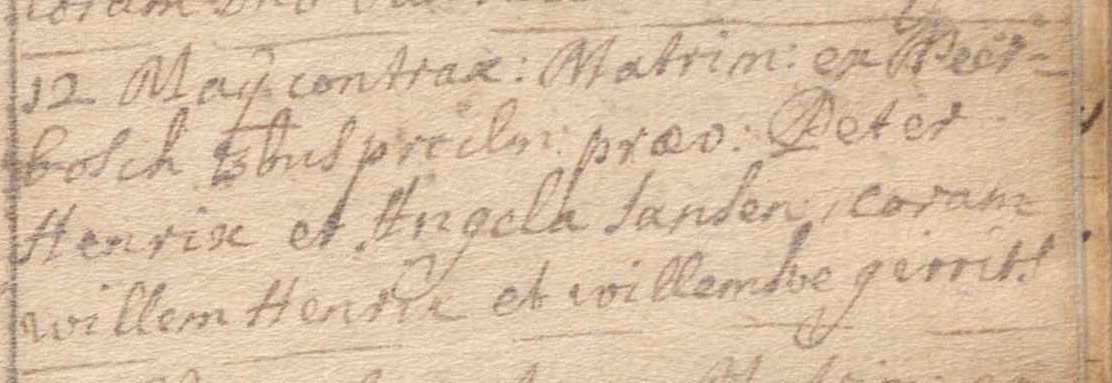 coram
12 Maÿ contrax: Matrim: ex Peer-
bosch 3bus proclm: præv: Peter
Henrix et Angela Jansen, coram
willem Henrix et willemke gerrits